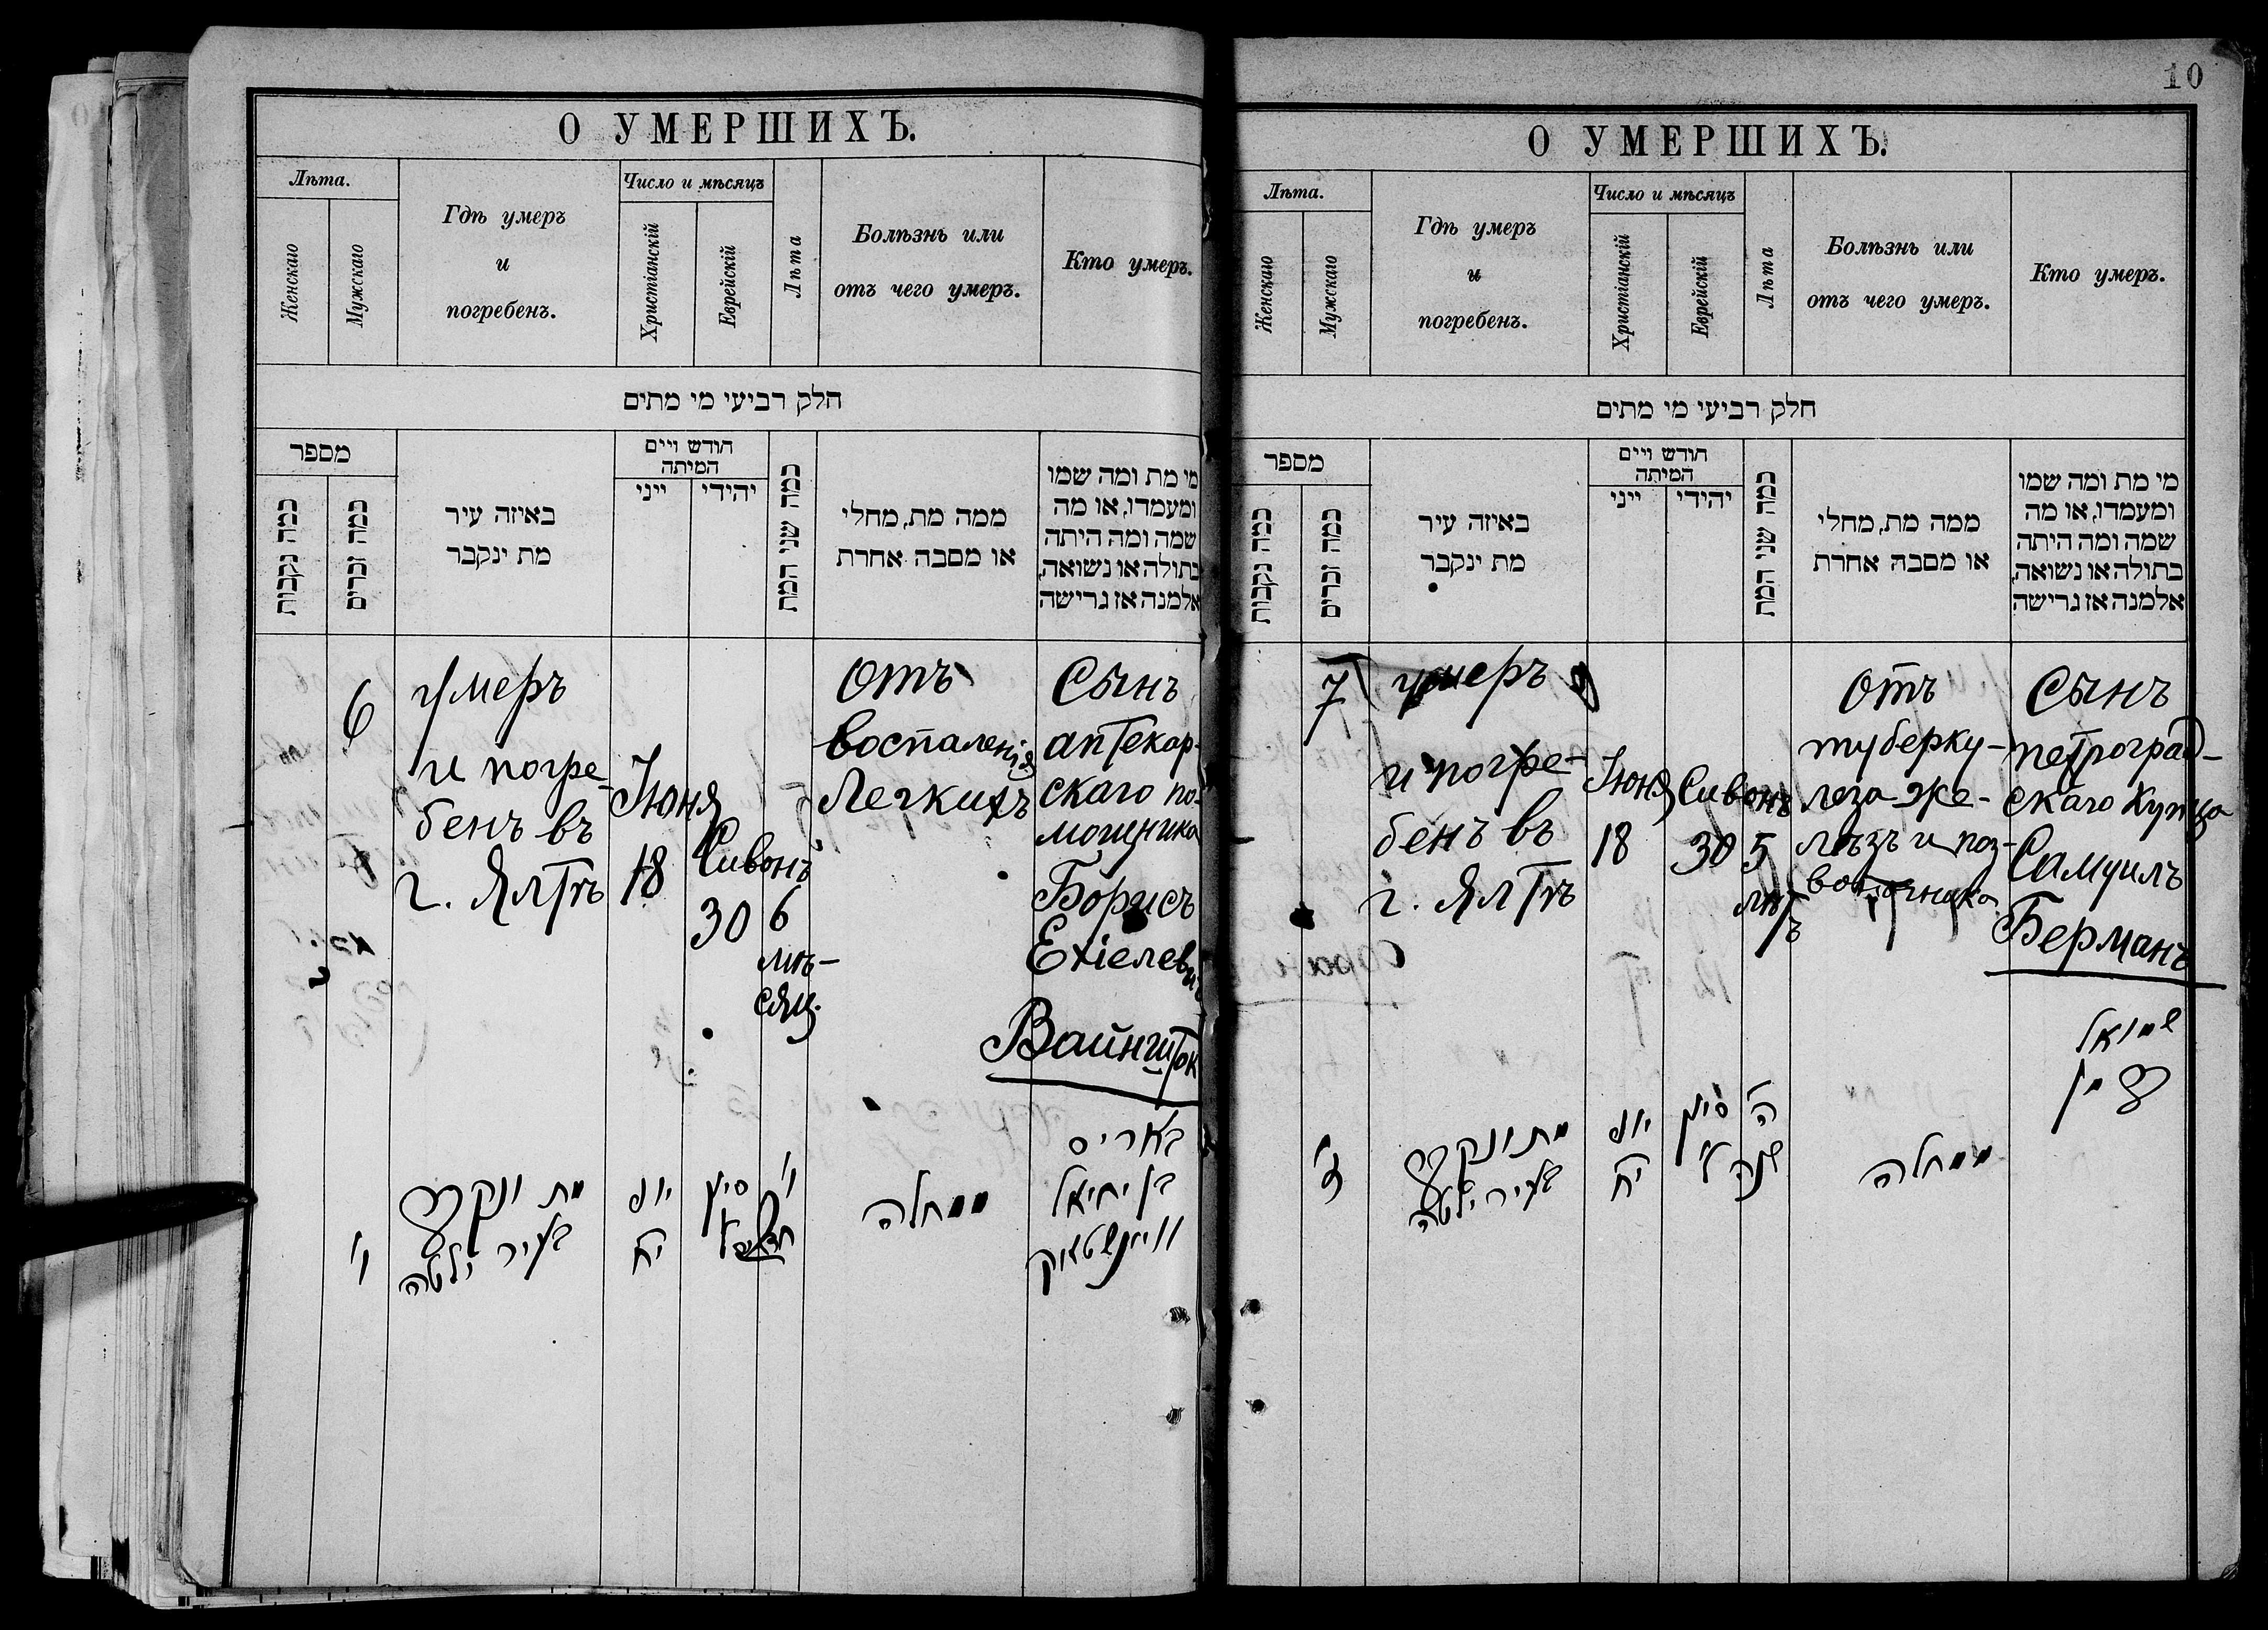 О УМЕРШИХЪ.
Лѣта.
Женскаго
Мужскаго
Гдѣ умеръ
и
погребенъ.
Число и мѣсяцъ
Христіанскій
Еврейскій
Лѣта
Болѣзнь или
отъ чего умеръ.
Кто умеръ.
חלק רביעי מי מתים
מספר
כמה נקבות
כמה זכרים
באיזה עיר
מת ינקבר
חודש ויים
המיתה
ייני
יהודי
כמה שני המת
ממה מת, מחלי
או מסבה אחרת
מי מת ומה שמו
ומעמדו, או מה
שמה ומה היתה
בתולה או נשואה,
אלמנה אז גרישה
6
умеръ
и погре-
бенъ въ
г. Ялтѣ
Іюня
18
Сивонъ
30
6
мѣ-
сяц.
отъ
воспаленія
Легкихъ
Сынъ
аптекар-
скаго по-
мощника
Борисъ
Ехіелев
Вайншток
ו'
מת ונקבר
בעיר ילטה
יוני
יח
סיון
ל'
ו'
ממחלה
באריס
בן יחיאל
וויינשטאק
10
О УМЕРШИХЪ.
Лѣта.
Женскаго
Мужскаго
Гдѣ умеръ
и
погребенъ.
Число и мѣсяцъ
Христіанскій
Еврейскій
Лѣта
Болѣзнь или
отъ чего умеръ.
Кто умеръ.
חלק רביעי מי מתים
מספר
כמה נקבות
כמה זכרים
באיזה עיר
מת ינקבר
חודש ויים
המיתה
ייני
יהודי
כמה שני המת
ממה מת, מחלי
או מסבה אחרת
מי מת ומה שמו
ומעמדו, או מה
שמה ומה היתה
בתולה או נשואה,
אלמנה אז גרישה
7
умеръ
и погре-
бенъ въ
г. Ялтѣ
Іюня
18
Сивонъ
30
5
лѣтъ
отъ
туберку-
леза же-
лѣзъ и поз-
воночника
Сынъ
петроград-
скаго купца
Самуилъ
Берманъ
ז'
מת ונקבר
בעיר ילטה
יוני
יח
סיון
ל'
ה'
שנה
ממחלה
שמואל